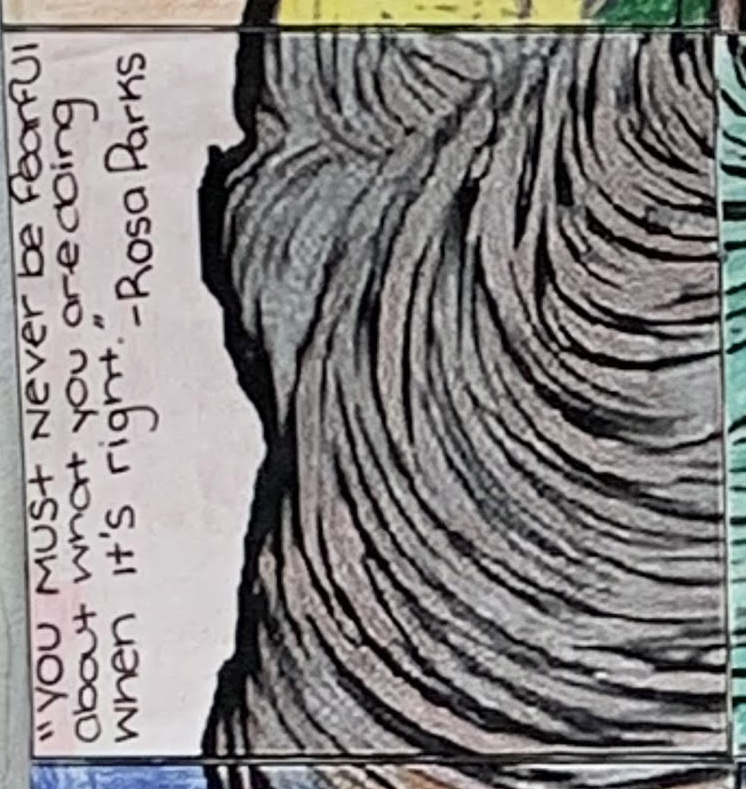 "YOU MUST Never be fearful
about what you are doing
when it's right." -Rosa Parks